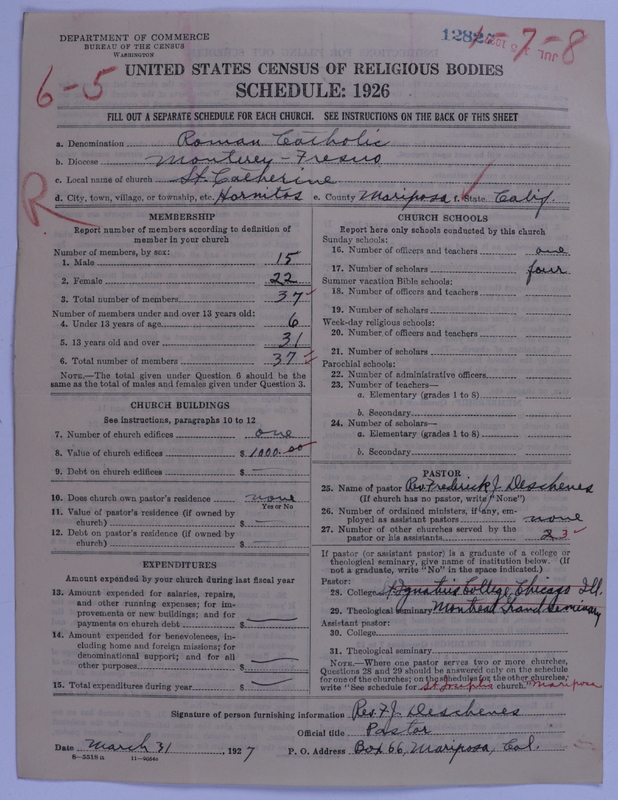 DEPARTMENT OF COMMERCE
BUREAU OF THE CENSUS
WASHINGTON
1-7-8
6-5
UNITED STATES CENSUS OF RELIGIOUS BODIES
SCHEDULE: 1926
FILL OUT A SEPARATE SCHEDULE FOR EACH CHURCH. SEE INSTRUCTIONS ON THE BACK OF THIS SHEET
a. Denomination Roman Catholic
b. Diocese Monterey-Fresno
c. Local name of church St. Catherine
d. City, town, village, or township, etc. Hornitos e. County Mariposa f. State Calif.
R
MEMBERSHIP
Report number of members according to definition of
member in your church
Number of members, by sex:
1. Male 15
2. Female 22
3. Total number of members 37
Number of members under and over 13 years old:
4. Under 13 years of age 6
5. 13 years old and over 31
6. Total number of members 37
NOTE.—The total given under Question 6 should be the
same as the total of males and females given under Question 3.
CHURCH BUILDINGS
See instructions, paragraphs 10 to 12
7. Number of church edifices one
8. Value of church edifices $1000.00
9. Debt on church edifices $ —
10. Does church own pastor's residence none
Yes or No
11. Value of pastor's residence (if owned by
church) $ —
12. Debt on pastor's residence (if owned by
church) $ —
EXPENDITURES
Amount expended by your church during last fiscal year
13. Amount expended for salaries, repairs,
and other running expenses; for im-
provements or new buildings; and for
payments on church debt $ —
14. Amount expended for benevolences, in-
cluding home and foreign missions; for
denominational support; and for all
other purposes $ —
15. Total expenditures during year $ —
CHURCH SCHOOLS
Report here only schools conducted by this church
Sunday schools:
16. Number of officers and teachers one
17. Number of scholars four
Summer vacation Bible schools:
18. Number of officers and teachers
19. Number of scholars
Week-day religious schools:
20. Number of officers and teachers
21. Number of scholars
Parochial schools:
22. Number of administrative officers
23. Number of teachers—
a. Elementary (grades 1 to 8)
b. Secondary
24. Number of scholars—
a. Elementary (grades 1 to 8)
b. Secondary
PASTOR
25. Name of pastor Rev. Frederick J. Deschenes
(If church has no pastor, write "None")
26. Number of ordained ministers, if any, em-
ployed as assistant pastors none
27. Number of other churches served by the
pastor or his assistants 2 3
If pastor (or assistant pastor) is a graduate of a college or
theological seminary, give name of institution below. (If
not a graduate, write "No" in the space indicated.)
Pastor:
28. College St Ignatius College, Chicago Ill.
29. Theological seminary Montreal Grand Seminary
Assistant pastor:
30. College
31. Theological seminary
NOTE.—Where one pastor serves two or more churches,
Questions 28 and 29 should be answered only on the schedule
for one of the churches; on the schedules for the other churches,
write "See schedule for St Josephs church." Mariposa
Signature of person furnishing information Rev. F. J. Deschenes
Official title Pastor
Date March 31, 1927 P. O. Address Box 66, Mariposa, Cal.
8—5518 a